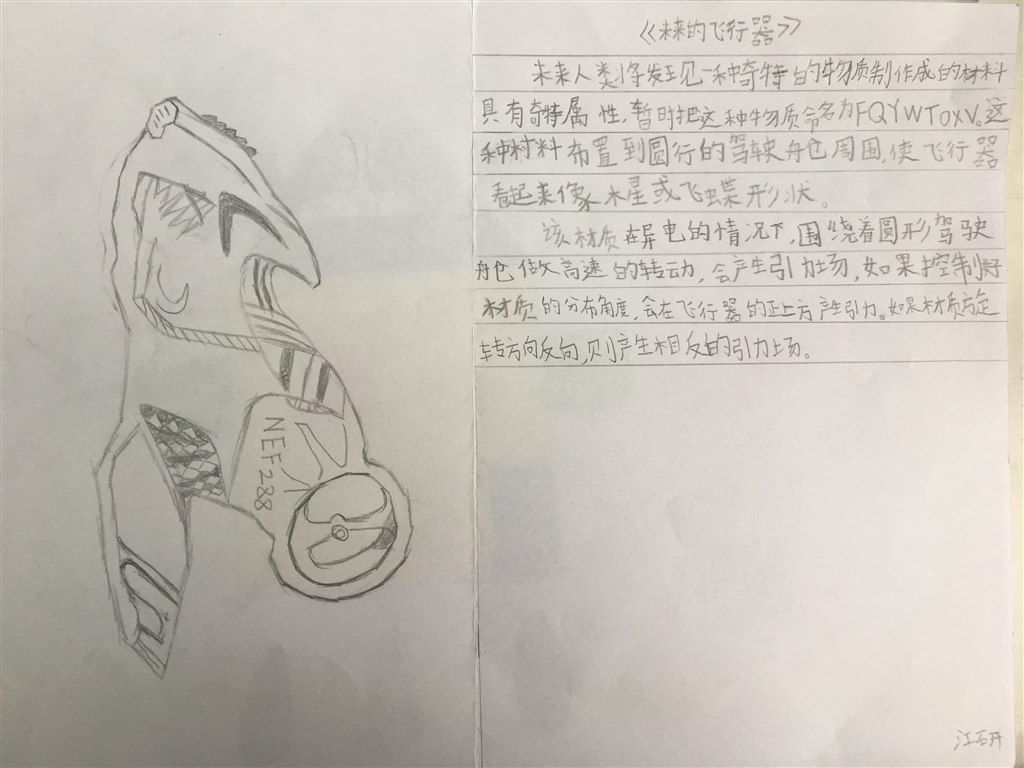 《未来的飞行器》
未来人类将发现一种奇特的物质制作成的材料
具有奇特属性,暂时把这种物质命名为FQYWTOXV。这
种材料布置到圆行的驾驶舱周围,使飞行器
看起来像木星或飞蝶形状。
该材质在异电的情况下,围绕着圆形驾驶
舱做高速的转动,会产生引力场,如果控制好
材质的分布角度,会在飞行器的正上方产生引力。如果材质旋
转方向反向,则产生相反的引力场。
NEF288
江研